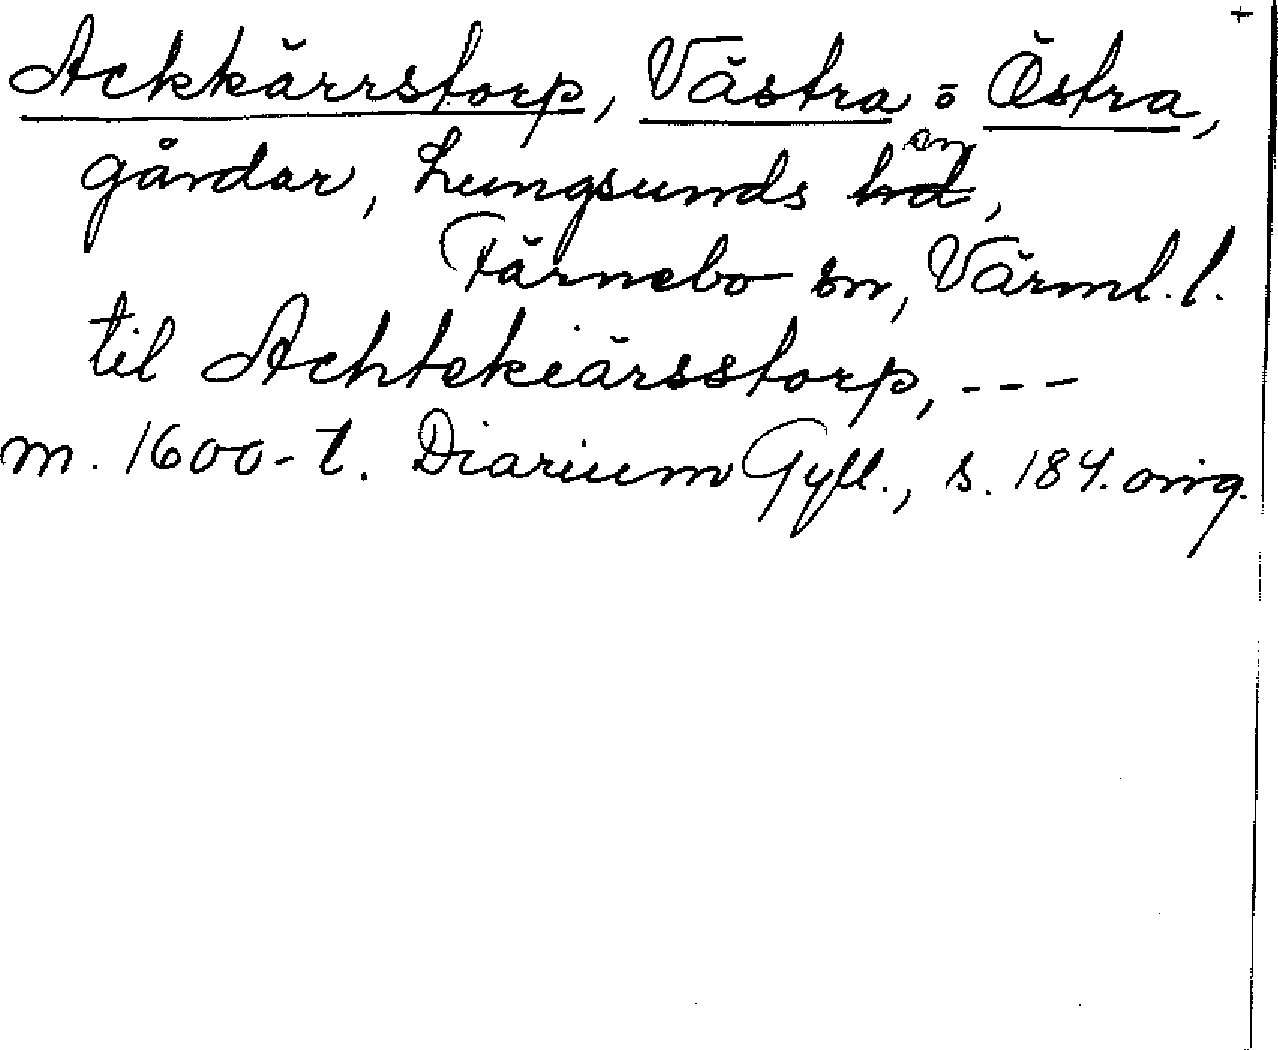 Ackkärrstorp, Västra o Östra,
gårdar, Lungsunds hd sn,
Färnebo sn, Värml. l.
til Achtekiärsstorp, ---
m. 1600-t. Diarium Gyll., s. 184. orig.